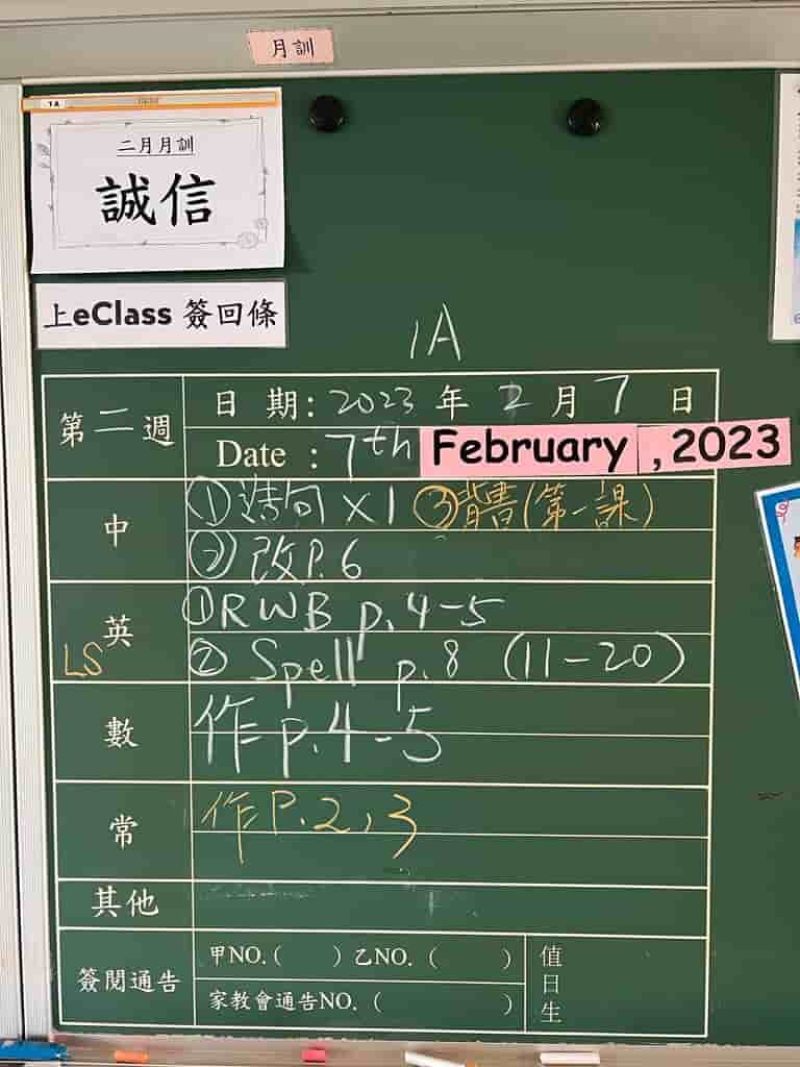 月訓
1A
二月月訓
誠信
上eClass 簽回條
1A
第二週
日 期: 2023 年 2 月 7 日
Date : 7th February , 2023
中
①請句 x1 ③背書(第一課)
②改P.6
英
LS
①RWB p.4-5
② Spell p.8 (11-20)
數
作p.4-5
常
作P.2,3
其他
簽閱通告
甲NO.( ) 乙NO. ( )
家教會通告NO. ( )
值日生